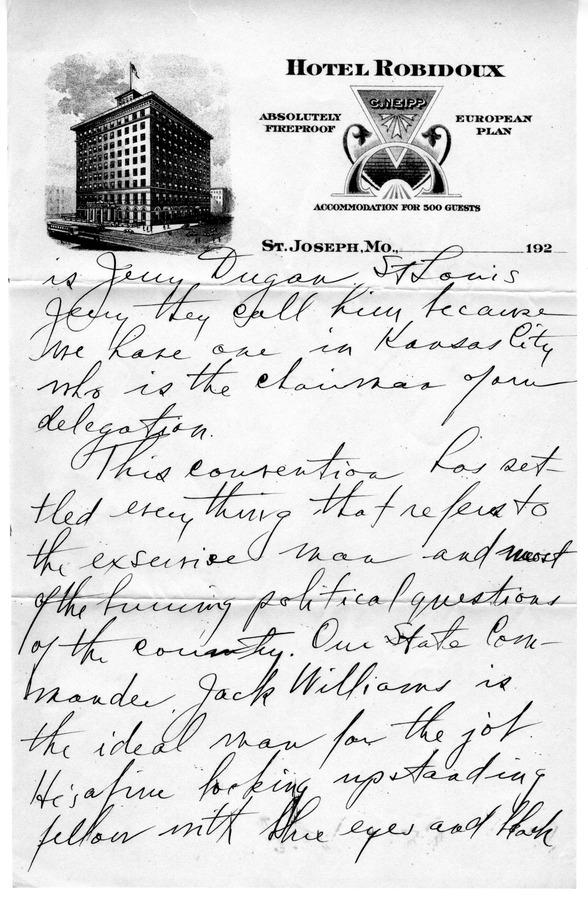 HOTEL ROBIDOUX
C. NEIPP
ABSOLUTELY FIREPROOF
EUROPEAN PLAN
ACCOMMODATION FOR 500 GUESTS
ST. JOSEPH, MO., 192
is Jerry Dugan, St Louis
Jerry they call him because
we have one in Kansas City
who is the chairman of our
delegation.
This convention has set-
tled everything that refers to
the exservice man and most
of the burning political questions
of the country. Our State Com-
mander, Jack Williams is
the ideal man for the job
He's a fine looking upstanding
fellow with blue eyes and black